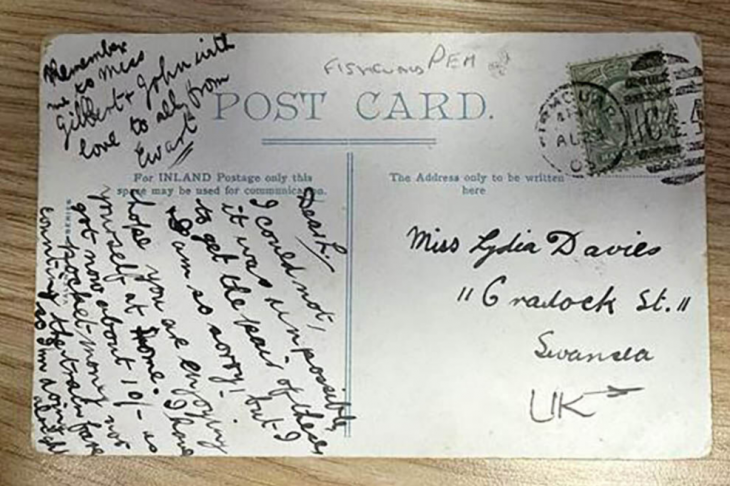 FISHGUARD PEM
POST CARD.
For INLAND Postage only this
space may be used for communication.
The Address only to be written
here
Miss Lydia Davies
"Cradock St."
Swansea
UK
Dear L,
I could not,
it was impossible
to get the pair of these
I am so sorry! but I
hope you are enjoying
yourself at home. I have
got now about 10/- as
pocket-money not
counting the train fare
so I'm doing
alright
Remember
me to Miss
Gilbert & John with
love to all from
Ewart